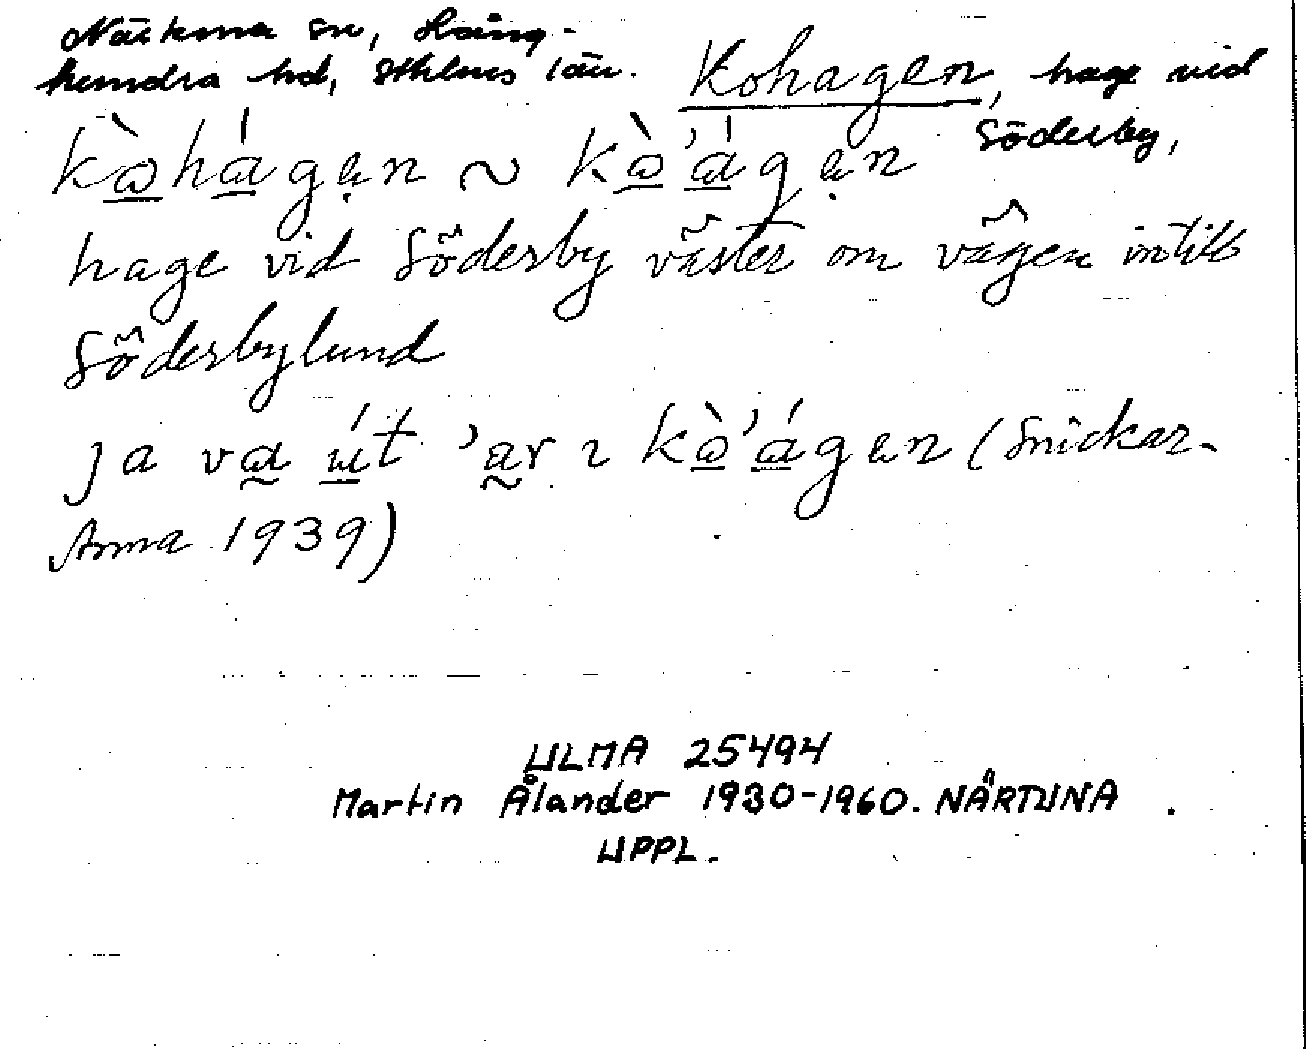 Närtuna sn, Lång-
hundra hd, Sthlms län. Kohagen, hage vid
Söderby,
kòhágen ~ kò'ágen
hage vid Söderby väster om vägen intill
Söderbylund
ja va út 'ar ı kò'ágen (Snickar-
Anna 1939)
ULMA 25494
Martin Ålander 1930-1960. NÄRTUNA.
UPPL.